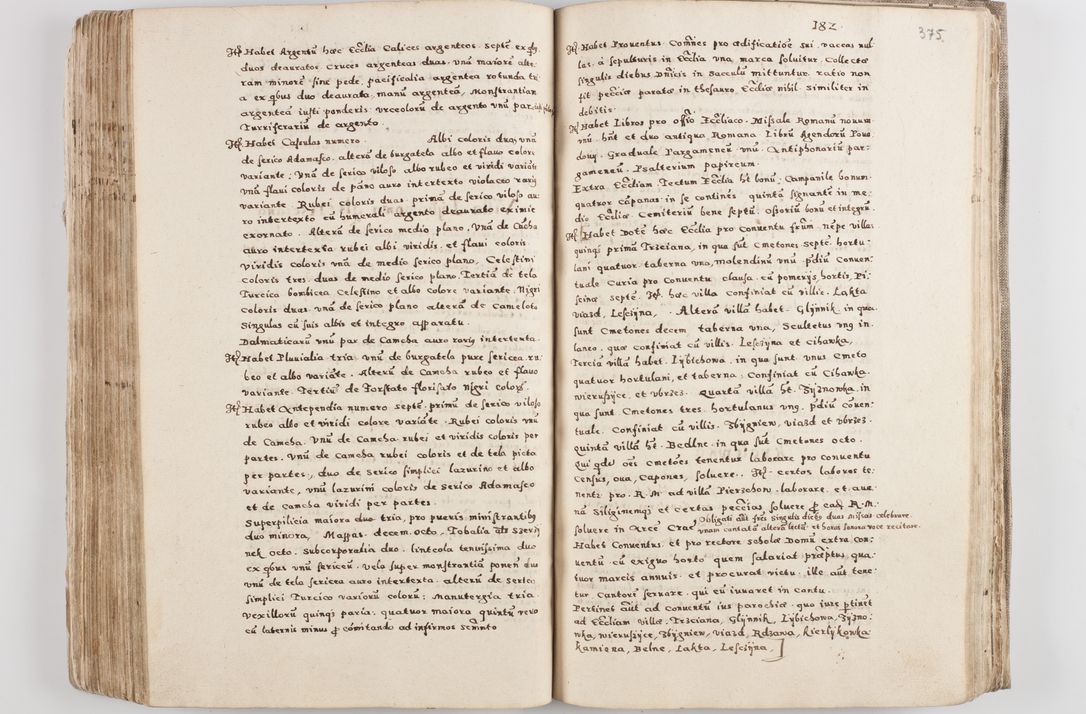 Itẽ Habet Argentũ hæc Eccl̃ia Calices argenteos septẽ ex q̃bꝯ
duos deauratos cruces argenteas duas. unã maiorẽ alte-
ram minorẽ sine pede. pacificalia argentea rotunda tri-
a ex q̃bus duo deaurata. manũ argenteã, Monstrantiam
argenteã iusti ponderis. vrceolorũ de argento vnũ par
Turriferariũ de argento.
Itẽ Habet Casulas numero. Albi coloris duas, vnã
de serico Adamasco. alterã de burgatela albo et flauo colore
variante. Vnã de serico viloso albo rubeo et viridi variãte
vnã flaui coloris de pãno auro intertexto violaceo rariꝯ
variante. Rubei coloris duas. primã de serico viloso au-
ro intertexto cũ humerali argento deaurato eximie
exornato. Alterã de serico medio plano. Vnã de Camcha
auro intertexta rubei albi viridis. et flaui coloris.
viridis coloris vnã de medio serico plano, Celestini
coloris tres. duas de medio serico plano. Tertiã de tela
Turcica bombicea Celestino et albo colore variante. Nigri
coloris duas. vnã de serico plano alterã de Cameloto
Singulas cũ suis albis et integro apparatu.
Dalmaticarũ vnũ par de Camcha auro rariꝯ intertexta.
Itẽ Habet Pluuialia tria. vnũ de burgatela pure sericea. ru-
beo et albo variãte. Alterũ de Camcha rubeo et flauo
variante. Tertiũ de Forstato florisato nigri coloris.
Itẽ Habet Antependia numero septẽ. primũ de serico viloso
rubeo albo et viridi colore variãte. Rubei coloris vnũ
de Camcha. Vnũ de Camcha rubei et viridis coloris per
partes. vnũ de camcha rubei coloris et de tela picta
per partes, duo de serico simplici lazurino et albo
variante, vnũ lazurini coloris de serico Adamasco
et de Camcha viridi per partes.
Superpilicia maiora duo tria, pro pueris ministrantibꝯ
duo minora, Mappas decem. octo. Tobalia als szerzi-
nek octo. subcorporalia duo. linteola tenuissima duo
ex q̃bus vnũ sericeũ. vela super monstrantiã ponendi duo
vnũ de tela sericea auro intertexta. alterũ de serico
simplici Turcico variorũ colorũ: Manutergia tria.
Vexillorũ quinq̃ paria, quatuor maiora quintũ vero
cũ labernũ minus ꝓ cõmitando ad infirmos scm̃nto
182.
375.
Itẽ Habet Prouentus. Com̃nes pro ædificatiõe sui. vaccas nul-
las. a sepulturis in Eccl̃ia vna marca soluitur. Collecta
singulis diebus Dñicis in sacculũ mittuntur. ratio non
fit. pecũia parata in thesauro Eccl̃iæ nihil. similiter in
debitis.
Itẽ Habet Libros pro offi̊o Eccl̃iaco. Missale Romanũ nouum
vnũ. hẽt et duo antiqua Romana Librũ Agendorũ Pow-
douy. Graduale Pargameneũ vnũ. Antiphonariũ par-
gameneũ. Psalterium papireum.
Extra Eccl̃iam Tectum Eccl̃ia hẽt bonũ. Campanile bonum.
quatuor cãpanas in se continẽs quintã signante in me-
dio Eccl̃iæ. Cemiteriũ bene septũ. Ossoriũ bonũ et integrũ.
Itẽ Habet Dotẽ hæc Eccl̃ia pro conuentu frũm. nẽpe villas
quinq̃ primã Trciana, in qua sut Cmetones septẽ. hortu-
lani quatuor. taberna vna, molendinũ vnũ. p̃diũ Conuen-
tuale Curia pro Conuentu clausa. cũ pomerijs, hortis, Pi-
scinæ septẽ. Itẽ. hæc villa Confiniat cũ villis. Lakta
viazd, Lesczÿna. Alterã villã habet. Glÿnnik in qua
sunt Cmetones decem taberna vna, Scultetus vnꝯ in
laneo. quæ confiniat cũ villis. Lesczÿna et Cikawka,
Tercia villã habet. Lÿbichowa. in qua sunt vnus Cmeto
quatuor hortulani, et taberna. Confiniat cũ Cikawka.
wieruszÿce. et vbrzez. quartã villã hẽt. Zÿznowka. in
qua sunt Cmetones tres. hortulanus vnꝯ. p̃diũ cõuen-
tuale. Confiniat cũ villis. Zbÿgniew, viazd et vbrzez.
quintã villã hẽt. Bedlne. in qua sut Cmetones octo.
Qui qdẽ oẽs cmetões tenentur laborare pro conuentu
Census, oua, Capones, soluere. Itẽ certos labores te-
nentr pro. R. M. ad villã Pierzchow. laborare. et aue-
nã Siliginemq̃ et certas pecũias, soluere ꝓ eadẽ R. M.
soluere in Arce Crac̃. Obligati aũt frẽs singulis diebꝯ duas Missas celebrare.
vnam cantatã alterã lectã. et horas sonora voce recitare.
Habet Conuentus. et pro rectore scholæ Domũ extra con-
uentũ cũ exiguo horto quem salariat præ̃ptus qua-
tuor marcis annuis. et procurat victu. ille aũt tene-
tur Cantorẽ seruare. qui eũ iuuaret in cantu.
Pertinet aũt ad conuentũ ius parochiæ. quo iure ꝑtinẽt
ad Eccl̃iam villæ. Trzciana, Glÿnnik, Lÿbichowa, Zÿzno-
wka, wieruszÿce, Zbÿgniew, viazd, Rdzawa, Kierlÿkowka
Kamiona, Belne, Lakta, Lesczÿna.